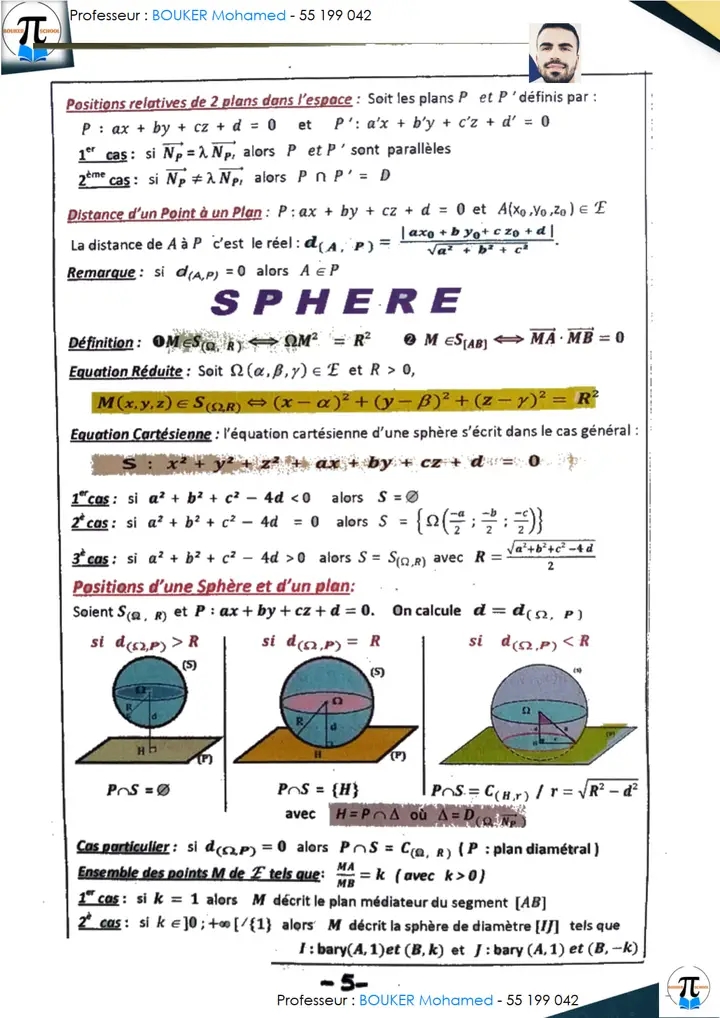 Professeur : BOUKER Mohamed - 55 199 042
BOUKER π SCHOOL
Positions relatives de 2 plans dans l'espace : Soit les plans P et P' définis par :
P : ax + by + cz + d = 0 et P' : a'x + b'y + c'z + d' = 0
1er cas : si N⃗P = λ N⃗P' alors P et P' sont parallèles
2ème cas : si N⃗P ≠ λ N⃗P' alors P ∩ P' = D
Distance d'un Point à un Plan : P : ax + by + cz + d = 0 et A(x₀,y₀,z₀) ∈ ℰ
La distance de A à P c'est le réel : d(A, P) = |ax₀ + b y₀ + c z₀ + d| / √a² + b² + c² .
Remarque : si d(A,P) = 0 alors A ∈ P
SPHERE
Définition : ❶ M ∈ S(Ω, R) ⟺ ΩM² = R² ❷ M ∈ S[AB] ⟺ MA⃗ · MB⃗ = 0
Equation Réduite : Soit Ω(α,β,γ) ∈ ℰ et R > 0,
M(x,y,z) ∈ S(Ω,R) ⇔ (x − α)² + (y − β)² + (z − γ)² = R²
Equation Cartésienne : l'équation cartésienne d'une sphère s'écrit dans le cas général :
S : x² + y² + z² + ax + by + cz + d = 0
1er cas : si a² + b² + c² − 4d < 0 alors S = ∅
2è cas : si a² + b² + c² − 4d = 0 alors S = {Ω(−a/2 ; −b/2 ; −c/2)}
3è cas : si a² + b² + c² − 4d > 0 alors S = S(Ω,R) avec R = √a²+b²+c²−4d / 2
Positions d'une Sphère et d'un plan:
Soient S(Ω, R) et P : ax + by + cz + d = 0. On calcule d = d(Ω, P)
si d(Ω,P) > R si d(Ω,P) = R si d(Ω,P) < R
(S) (S) (S)
Ω Ω Ω
R d R d
H (P) H (P)
P∩S = ∅ P∩S = {H} P∩S = C(H,r) / r = √R² − d²
avec H = P∩Δ où Δ = D(Ω, N⃗P)
Cas particulier : si d(Ω,P) = 0 alors P∩S = C(Ω, R) ( P : plan diamétral )
Ensemble des points M de ℰ tels que: MA/MB = k (avec k > 0)
1er cas : si k = 1 alors M décrit le plan médiateur du segment [AB]
2è cas : si k ∈]0 ; +∞ [/{1} alors M décrit la sphère de diamètre [IJ] tels que
I : bary(A, 1)et (B, k) et J : bary (A, 1) et (B, −k)
- 5-
Professeur : BOUKER Mohamed - 55 199 042
BOUKER π SCHOOL